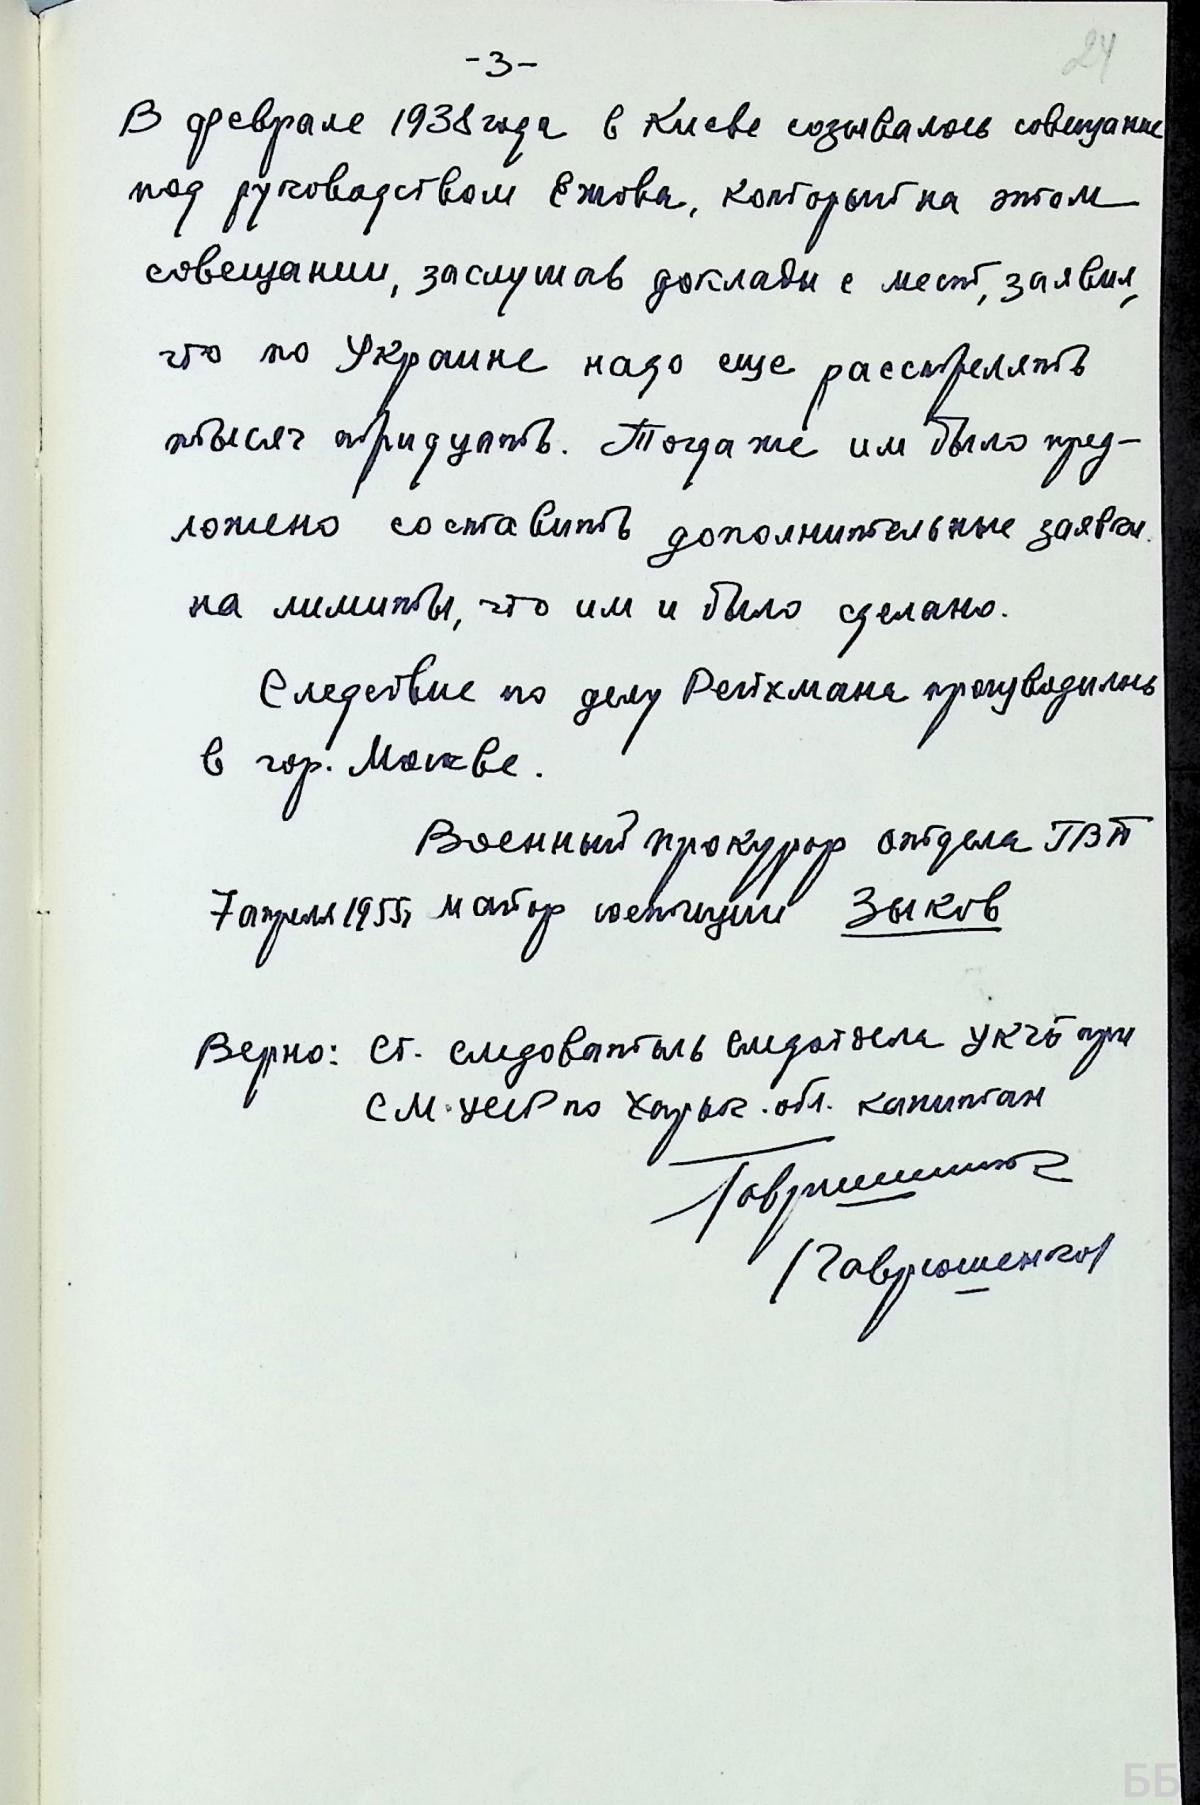 -3-
24
В феврале 1938 года в Киеве созывалось совещание
под руководством Ежова, который на этом
совещании, заслушав доклады с мест, заявил,
что по Украине надо еще расстрелять
тысяч тридцать. Тогда же им было пред-
ложено составить дополнительные заявки
на лимиты, что им и было сделано.
Следствие по делу Рейхмана производилось
в гор. Москве.
Военный прокурор отдела ГВП
7 апреля 1955 г майор юстиции Зыков
Верно: Ст. следователь следотдела УКГБ при
СМ УССР по Харьк. обл. капитан
/Гаврюшенко/
ББ